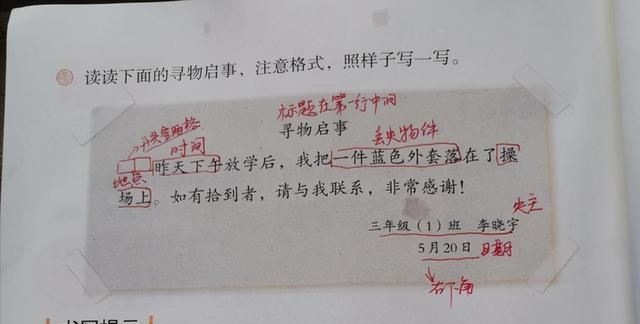 读读下面的寻物启事，注意格式，照样子写一写。
标题在第一行中间
开头空两格
寻物启事
丢失物件
时间
昨天下午放学后，我把一件蓝色外套落在了操
地点
场上。如有拾到者，请与我联系，非常感谢！
失主
三年级（1）班 李晓宇
5月20日 日期
右下角